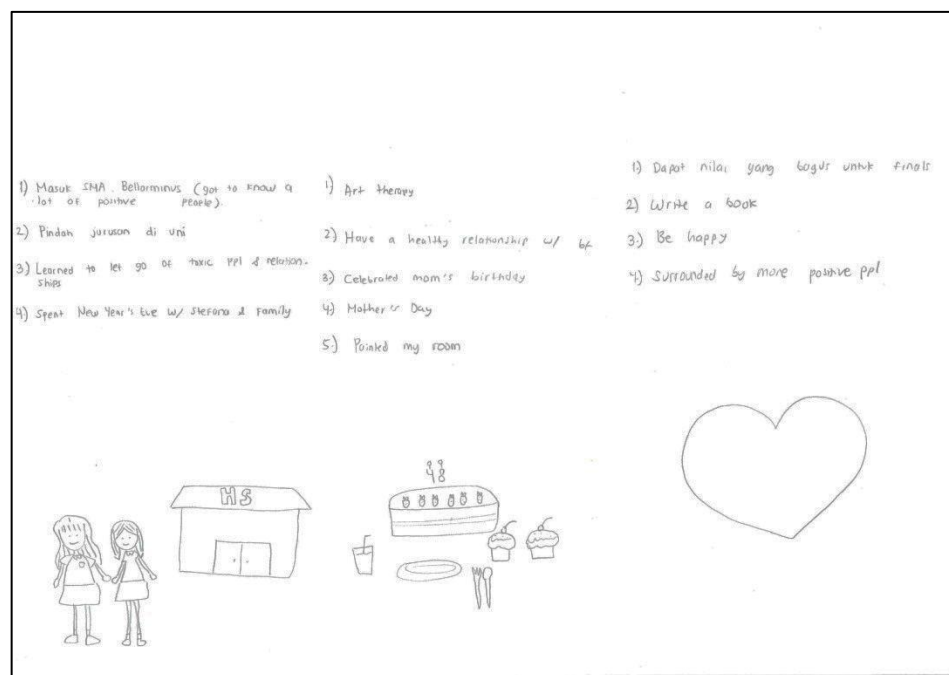 1) Masuk SMA. Bellarminus (got to know a
lot of positive people).
2) Pindah jurusan di uni
3) Learned to let go of toxic ppl & relation-
ships
4) Spent New Year's Eve w/ Stefano & Family
1) Art therapy
2) Have a healthy relationship w/ bf
3) Celebrated mom's birthday
4) Mother's Day
5) Painted my room
1) Dapat nilai yang bagus untuk finals
2) Write a book
3) Be happy
4) Surrounded by more positive ppl
HS
48